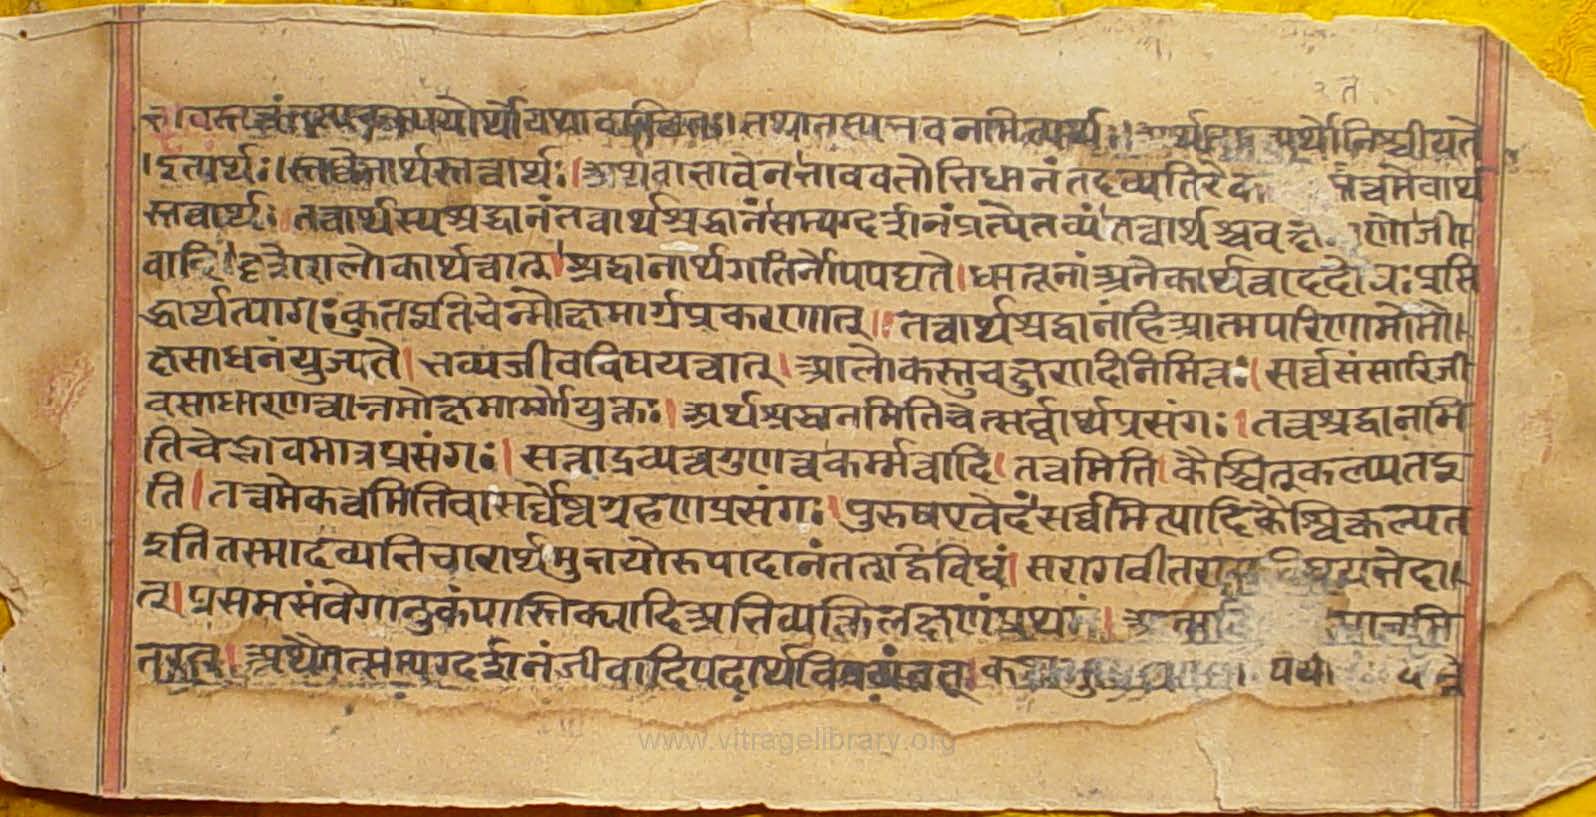 योर्थोयथावस्थितः। तथातस्यभवनमित्यर्थः। अर्थ्यत इत्यर्थोनिश्चीयते
।इत्यर्थः।तत्त्वेनार्थस्तत्वार्थः।अथवाभावेनभाववतोभिधानंतदव्यतिरेका तत्त्वमेवार्थ
स्तवार्थः।तवार्थस्यश्रद्धानंतवार्थश्रद्धानंसम्यग्दर्शनंप्रत्येतव्यंतत्वार्थश्चवक्ष णोजीवा
वादिः।दृशेरालोकार्थत्वात्।श्रद्धानार्थगतिर्नोपपद्यते।धातूनांअनेकार्थत्वाददोषःप्रसि
द्धार्थत्यागःकुतइतिचेन्मोक्षमार्गप्रकरणात्।तत्वार्थश्रद्धानंहिआत्मपरिणामोमो।
क्षसाधनंयुज्यते।भव्यजीवविषयत्वात्।आलोकस्तुचक्षुरादीनिमित्तः।सर्व्वसंसारिजी
वसाधारणत्वान्नमोक्षमार्गोयुक्तः।अर्थश्रद्धानमितिचेत्सर्व्वार्थप्रसंगः।तत्वश्रद्धानमि
तिचेद्भावमात्रप्रसंगः।सत्ताद्रव्यत्वगुणत्वकर्म्मत्वादि।तत्वमिति।कैश्चित्कल्प्यतइ
ति।तत्त्वमेकत्वमितिवासर्व्वैक्यग्रहणप्रसंगः।पुरुषएवेदंसर्व्वमित्यादिकैश्चिकल्प्यत
इतितस्मादव्यभिचारार्थमुभयोरुपादानंतत्द्विविधं।सरागवीतरागविषयभेदा।
त्।प्रसमसंवेगानुकंपास्तिक्यादिअभिव्यक्तिलक्षणंप्रथमं।आत्मवि मात्रमि
तरत्।अथैतत्सम्यग्दर्शनंजीवादिपदार्थविषयं
www.vitragelibrary.org